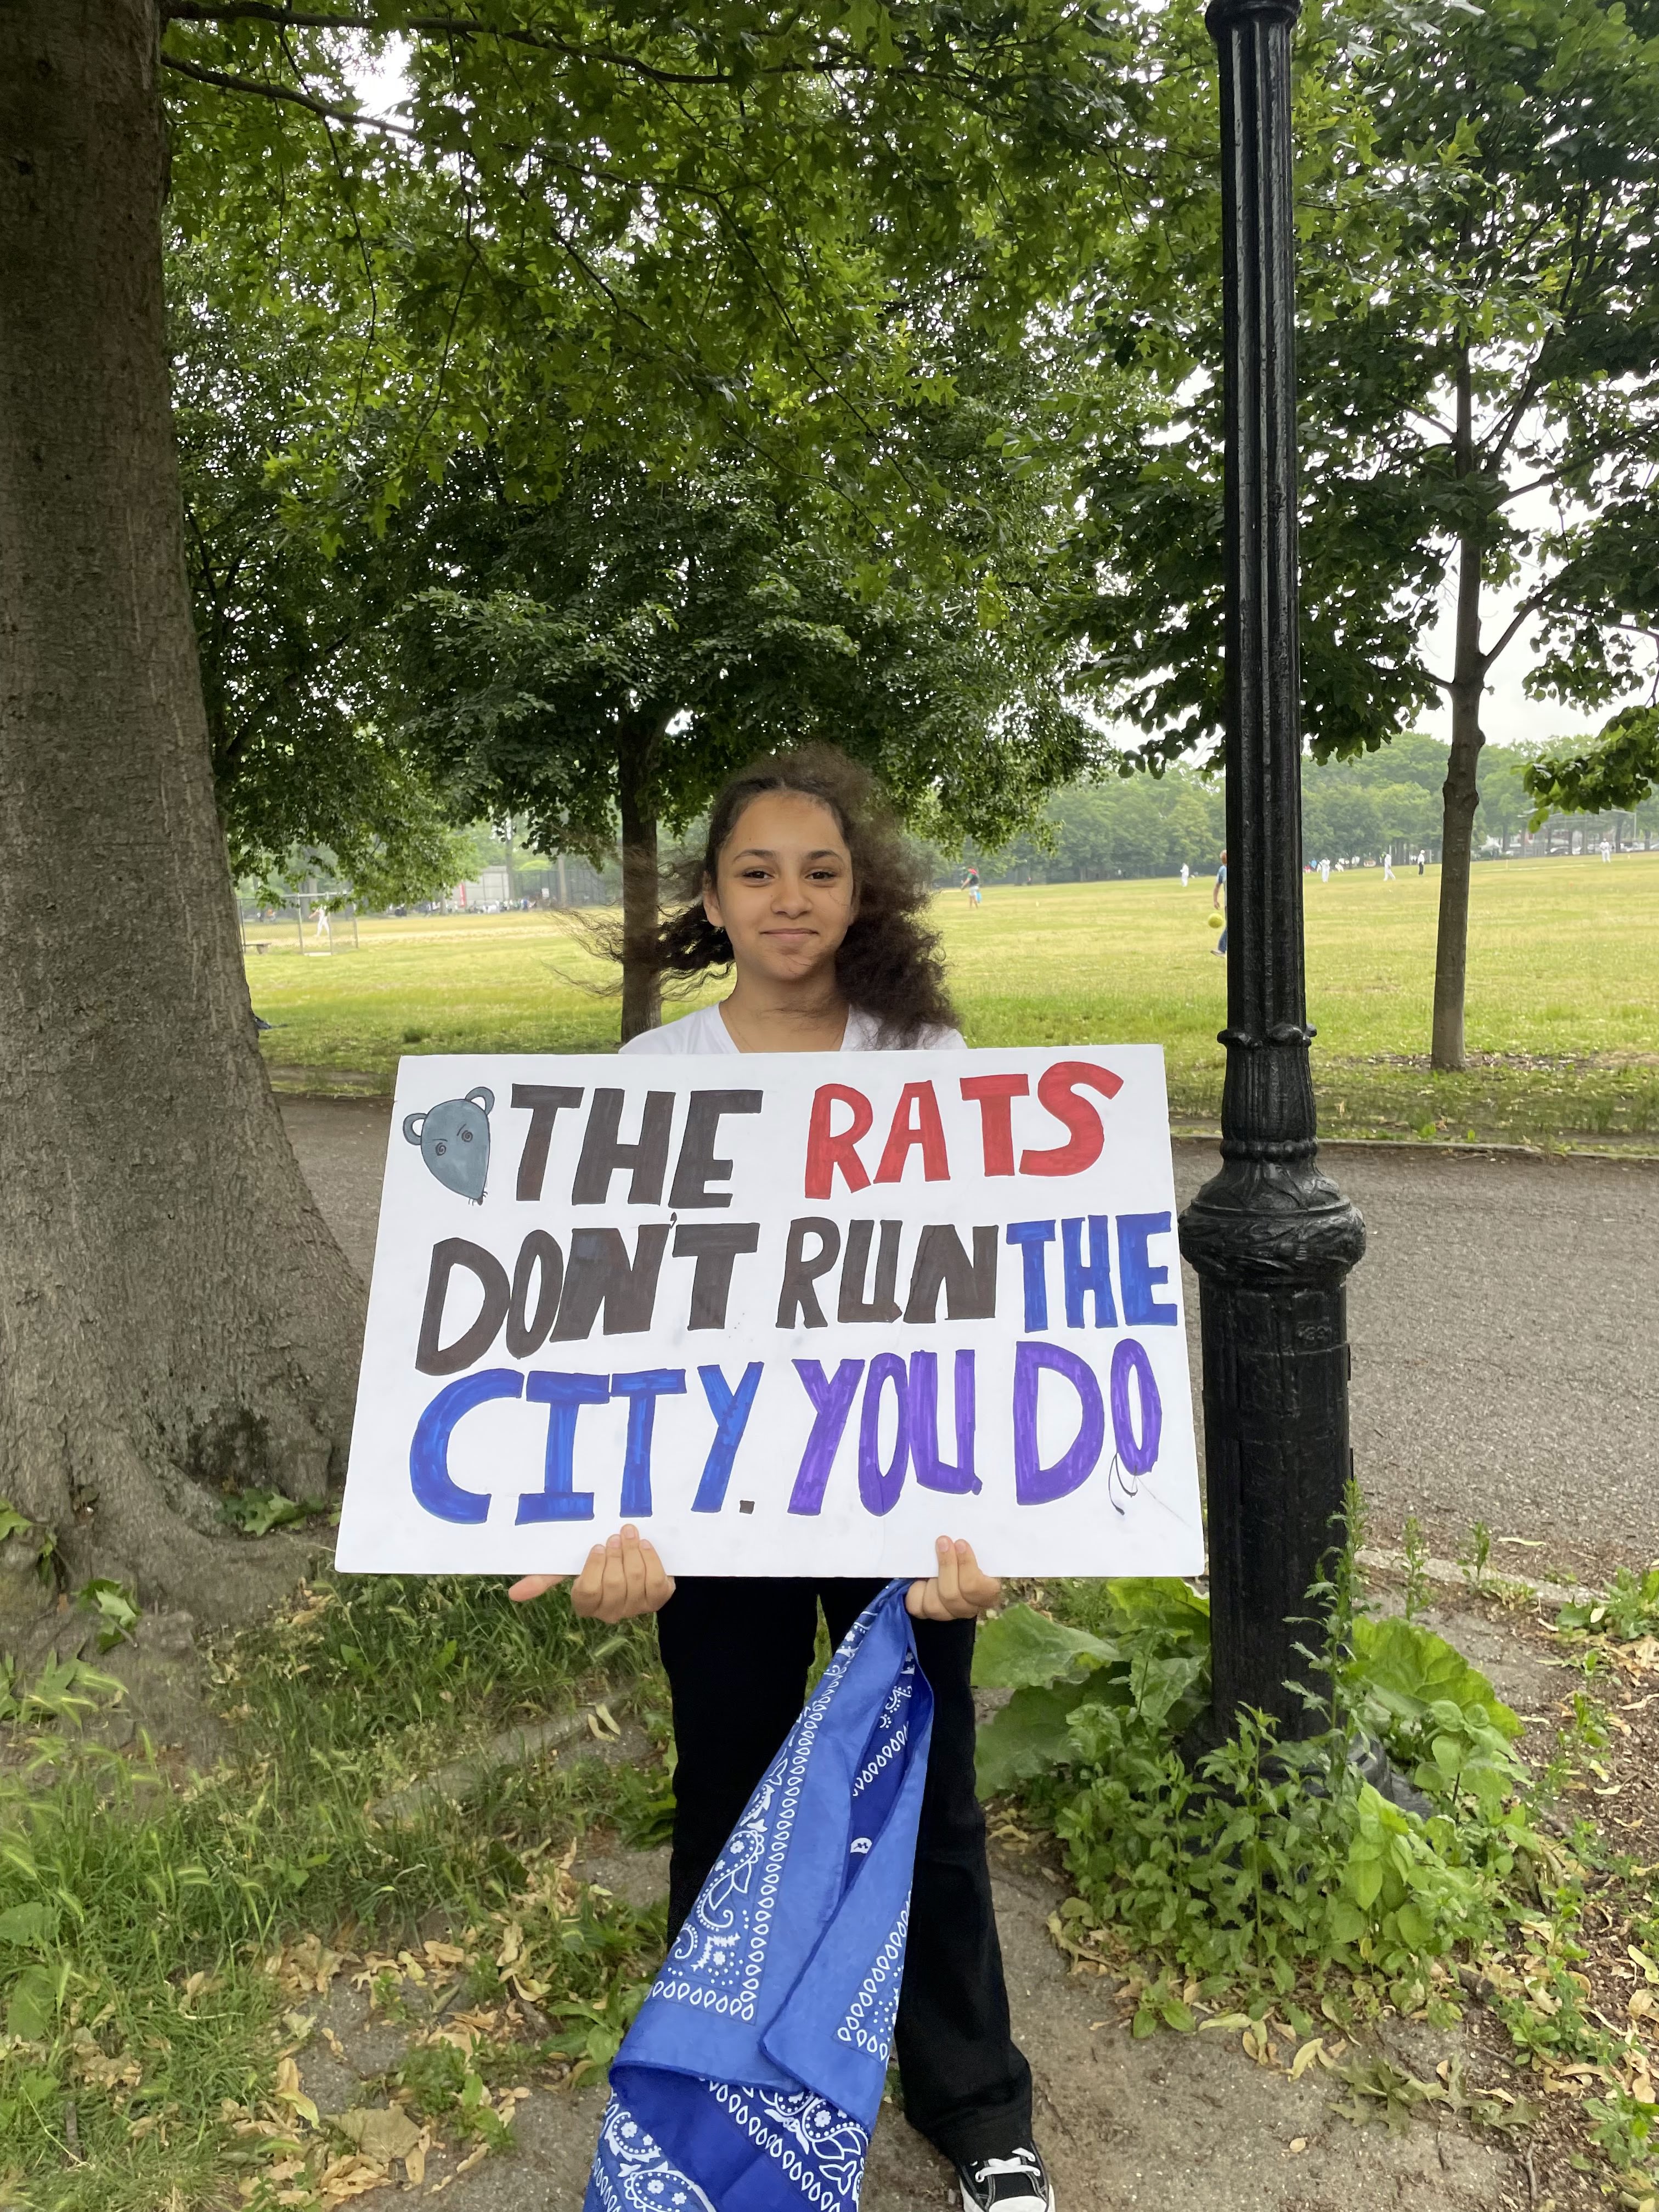 THE RATS
DON'T RUN THE
CITY. YOU DO